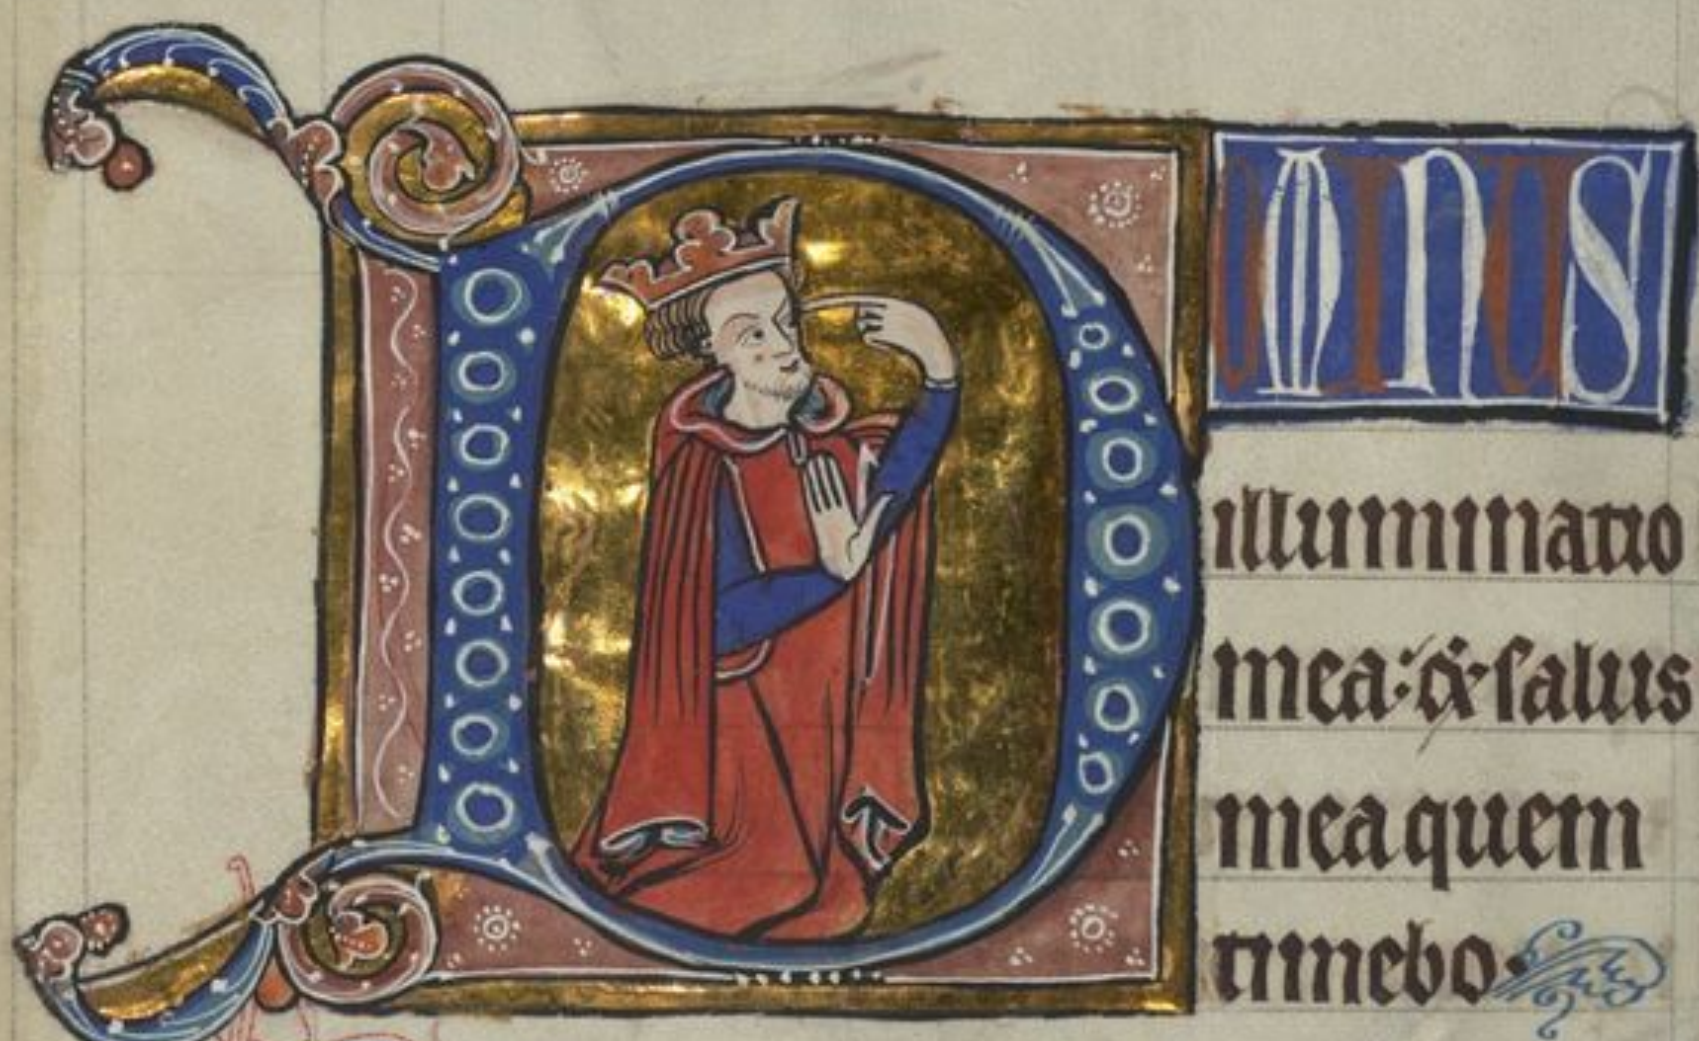 DOMINUS
illuminatio
mea: & salus
mea quem
timebo.